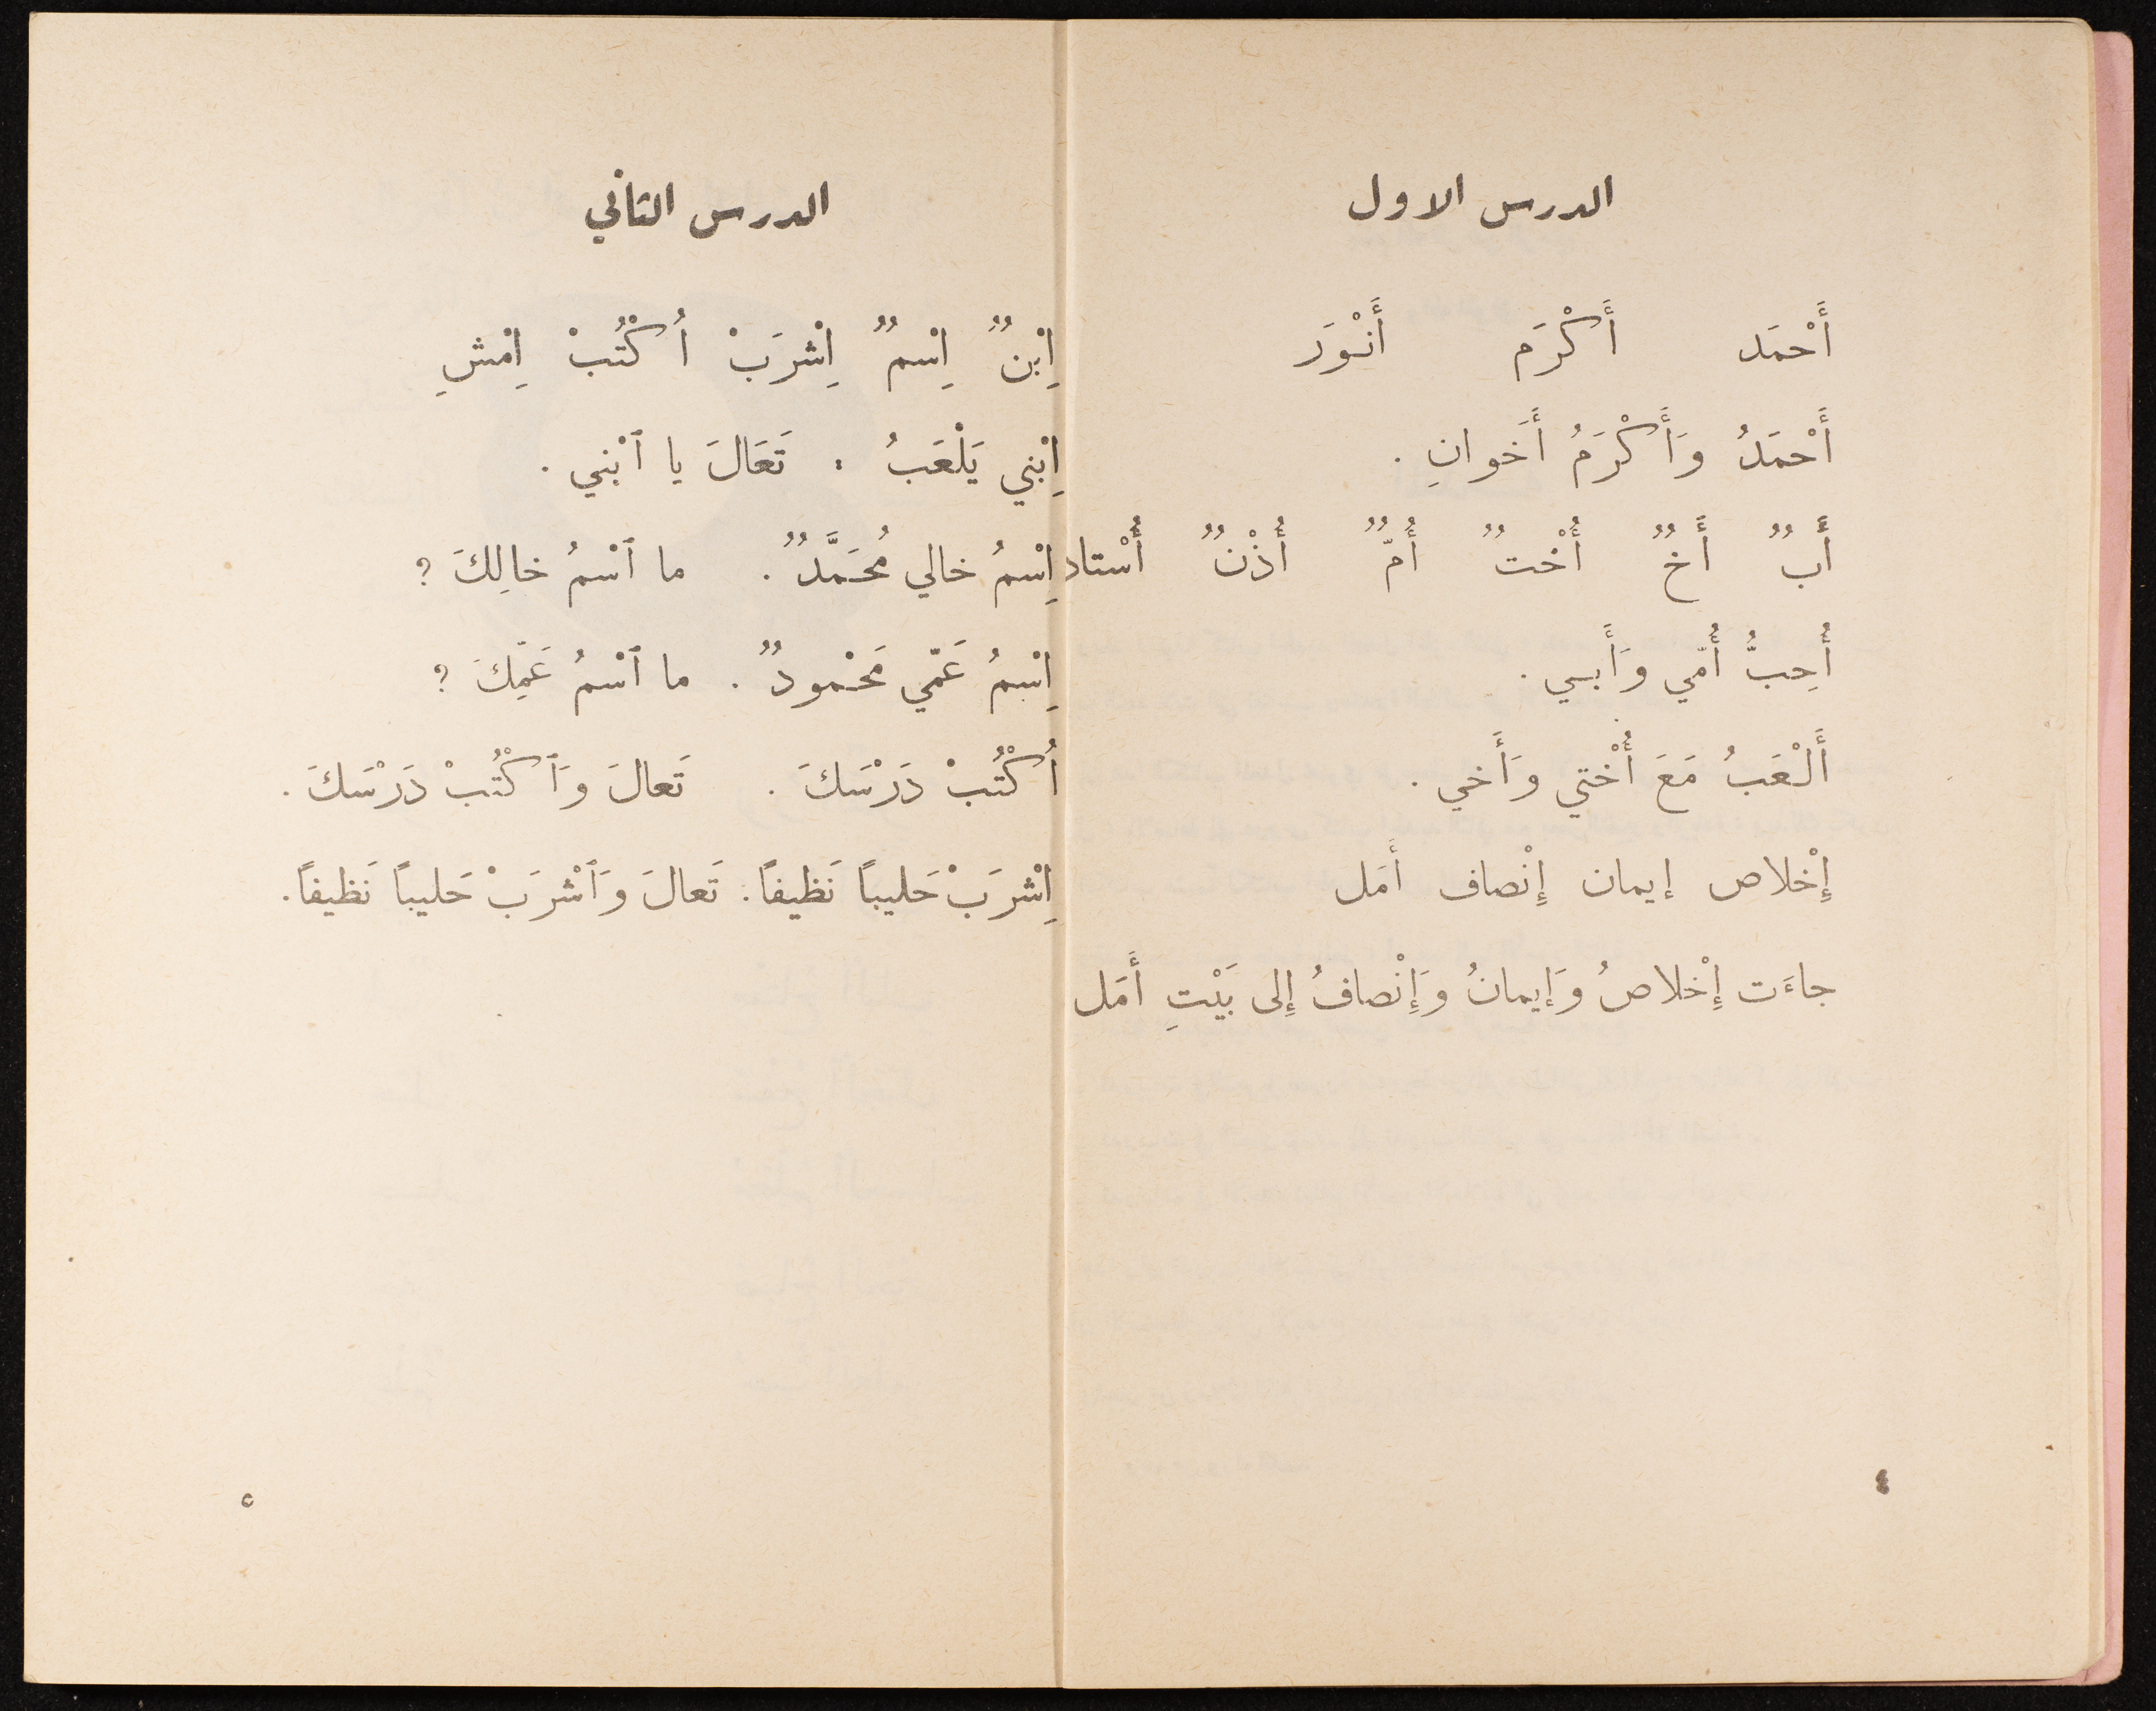 الدرس الاول
أَحْمَد أَكْرَم أَنْوَر
أَحْمَدُ وَأَكْرَمُ أَخَوانِ .
أَبٌ أَخٌ أُخْتٌ أُمٌّ أُذْنٌ أُسْتاذ
أُحِبُّ أُمّي وَأَبي .
أَلْعَبُ مَعَ أُخْتي وَأَخي .
إِخْلاص إيمان إِنْصاف أَمَل
جاءَت إِخْلاصُ وَإيمانُ وَإِنْصافُ إِلى بَيْتِ أَمَل
٤
الدرس الثاني
اِبْنٌ اِسْمٌ اِشْرَبْ اُكْتُبْ اِمْشِ
اِبْني يَلْعَبُ . تَعَالَ يا ٱبْني .
اِسْمُ خالي مُحَمَّدٌ . ما ٱسْمُ خالِكَ ؟
اِسْمُ عَمّي مَحْمودٌ . ما ٱسْمُ عَمِّكَ ؟
اُكْتُبْ دَرْسَكَ . تَعالَ وَٱكْتُبْ دَرْسَكَ .
اِشْرَبْ حَليباً نَظيفاً . تَعالَ وَٱشْرَبْ حَليباً نَظيفاً .
٥